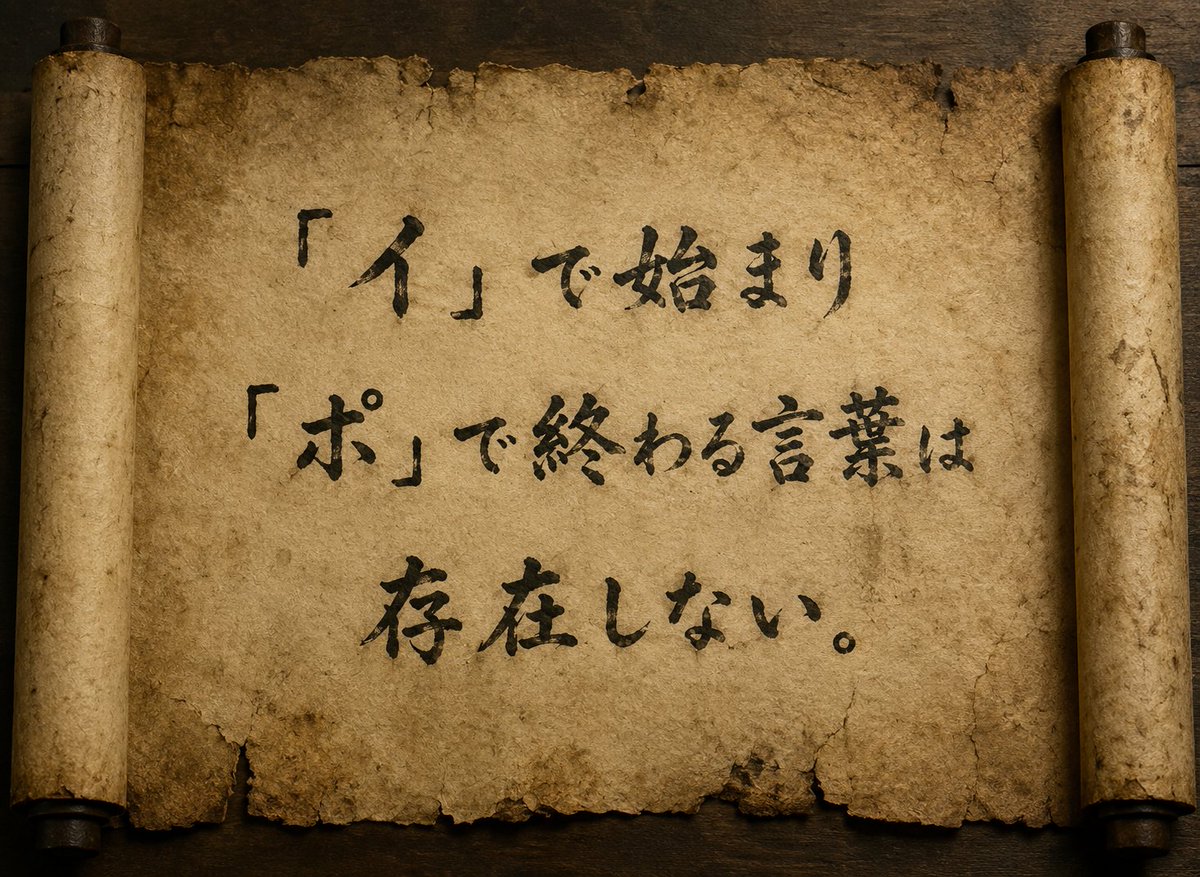 「イ」で始まり
「ポ」で終わる言葉は
存在しない。